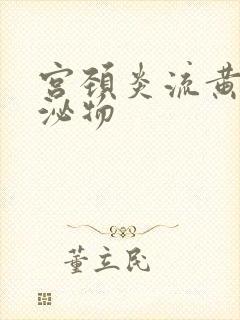 宫颈炎流黄
泌物
董立民